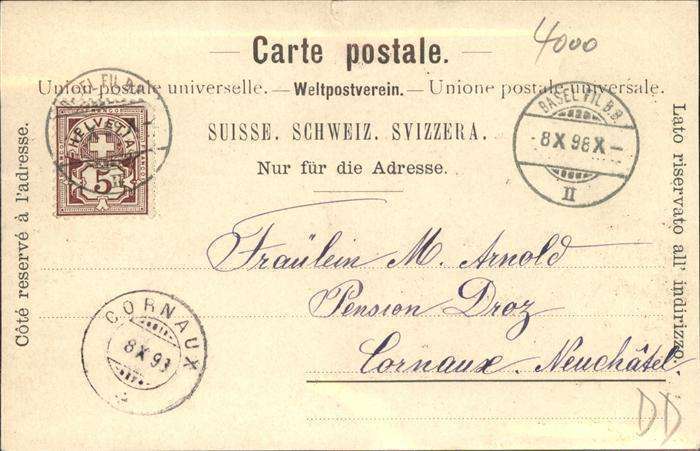 4000
— Carte postale. —
Union postale universelle. — Weltpostverein. — Unione postale universale.
SUISSE. SCHWEIZ. SVIZZERA.
Nur für die Adresse.
Côté reservé à l'adresse.
Lato riservato all' indirizzo.
HELVETIA
5
BASEL FIL.
BASEL FIL. B.B.
8 X 98 X
II
Fräulein M. Arnold
Pension Droz
Cornaux. Neuchâtel.
CORNAUX
8 X 93
DD